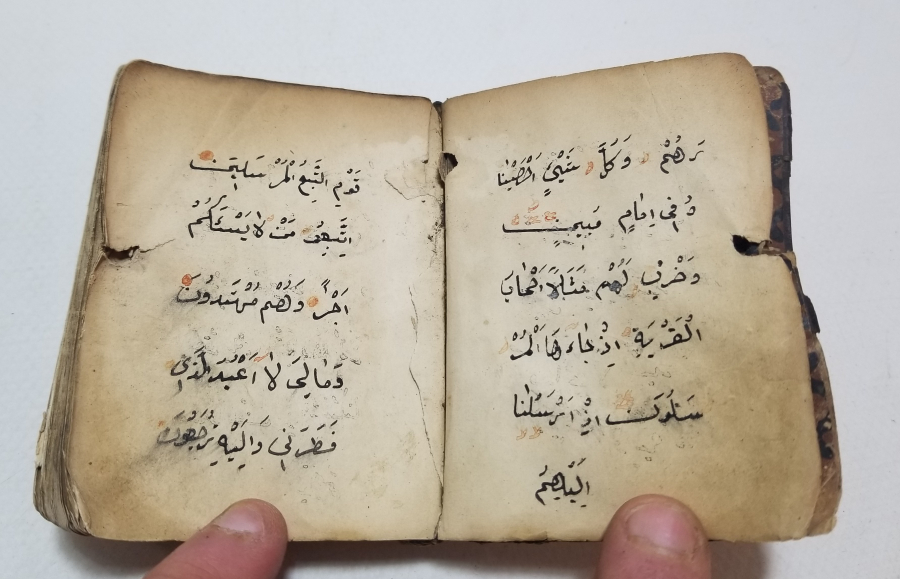 ثَرَهُمْ وَكُلَّ شَيْءٍ اَحْصَيْنَا
هُ فِى اِمَامٍ مُبِينٍ
وَضْرِبْ لَهُمْ مَثَلًا اَصْحَابَ
الْقَرْيَةِ اِذْ جَاءَهَا الْمُرْ
سَلُونَ اِذْ اَرْسَلْنَا
اِلَيْهِمُ
قَوْمِ التَّبِعُ الْمُرْ سَلِينَ
اتَّبِعُو مَنْ لَا يَسْئَلُكُمْ
اَجْرًا وَهُمْ مُهْتَدُونَ
وَمَا لِىَ لَا اَعْبُدُ الَّذِى
فَطَرَنِى وَاِلَيْهِ تُرْجَعُونَ